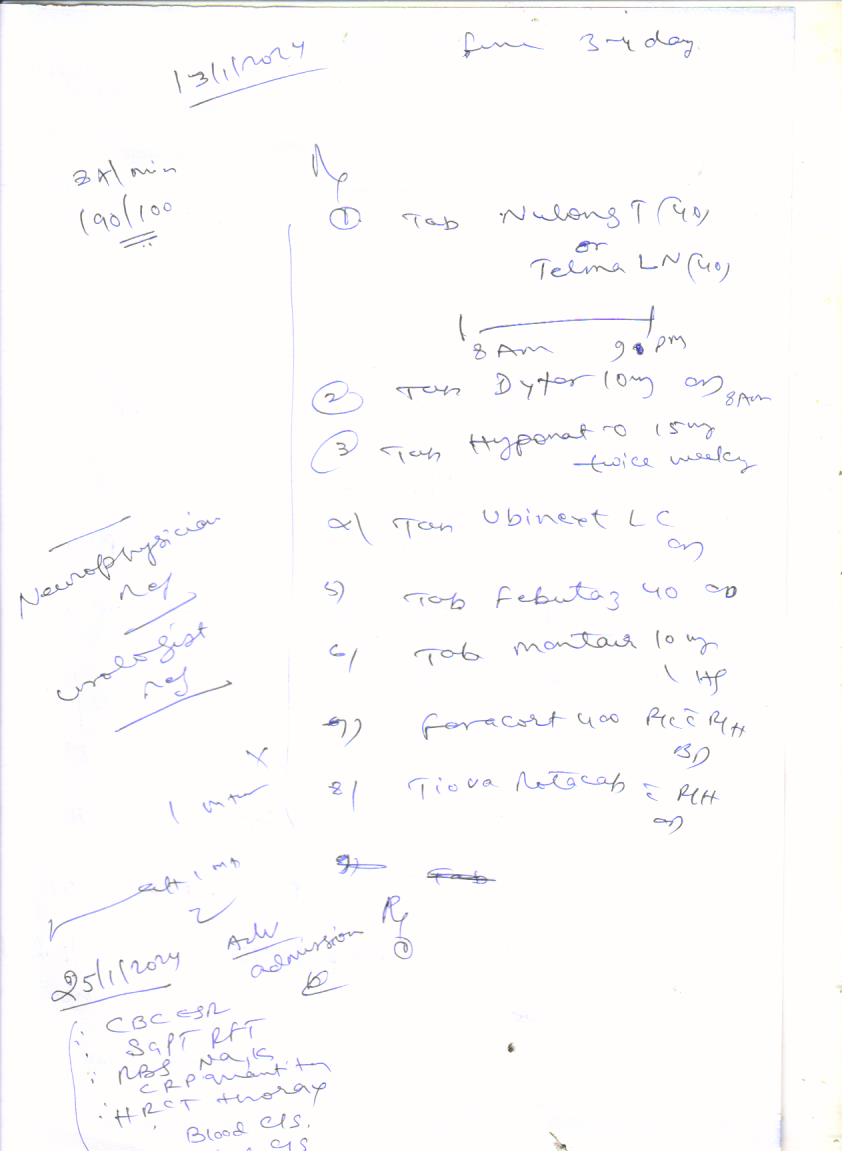 13/1/2024
3-4 day
/min
190/100
Rx
① Tab Nulong T (40)
or
Telma LN (40)
8 Am 9 pm
② Tab Dytor 10mg OD 8Am
③ Tab Hyponat-O 15mg
twice weekly
4) Tab Ubinext LC
OD
5) Tab Febutaz 40 OD
6) Tab Montair 10 mg
1 HS
7) Foracort 400 R/C c̄ R/H
BD
8) Tiova Rotacap c̄ R/H
OD
Neurophysician
Ref
urologist
Ref
X
1
9) Tab
25/1/2024
Adv
admission
Rx
CBC ESR
SGPT RFT
RBS Na, K
CRP quanti
HRCT thorax
Blood C/S.
C/S